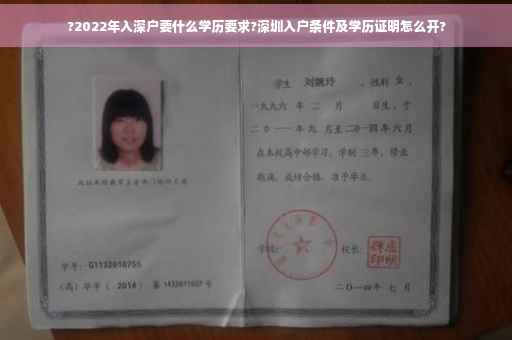 ?2022年入深户要什么学历要求?深圳入户条件及学历证明怎么开?
学生 刘婉玲 ，性别 女 ，
一九九六 年 二 月 日生，于
二〇一一年九 月至二〇一四年 六 月
在本校高中部学习，学制 三年，修业
期满，成绩合格，准予毕业。
学校： 校长：
学号： G1132010755
（高）毕字（ 2014 ）第 1432011027 号
二〇一四年 七 月